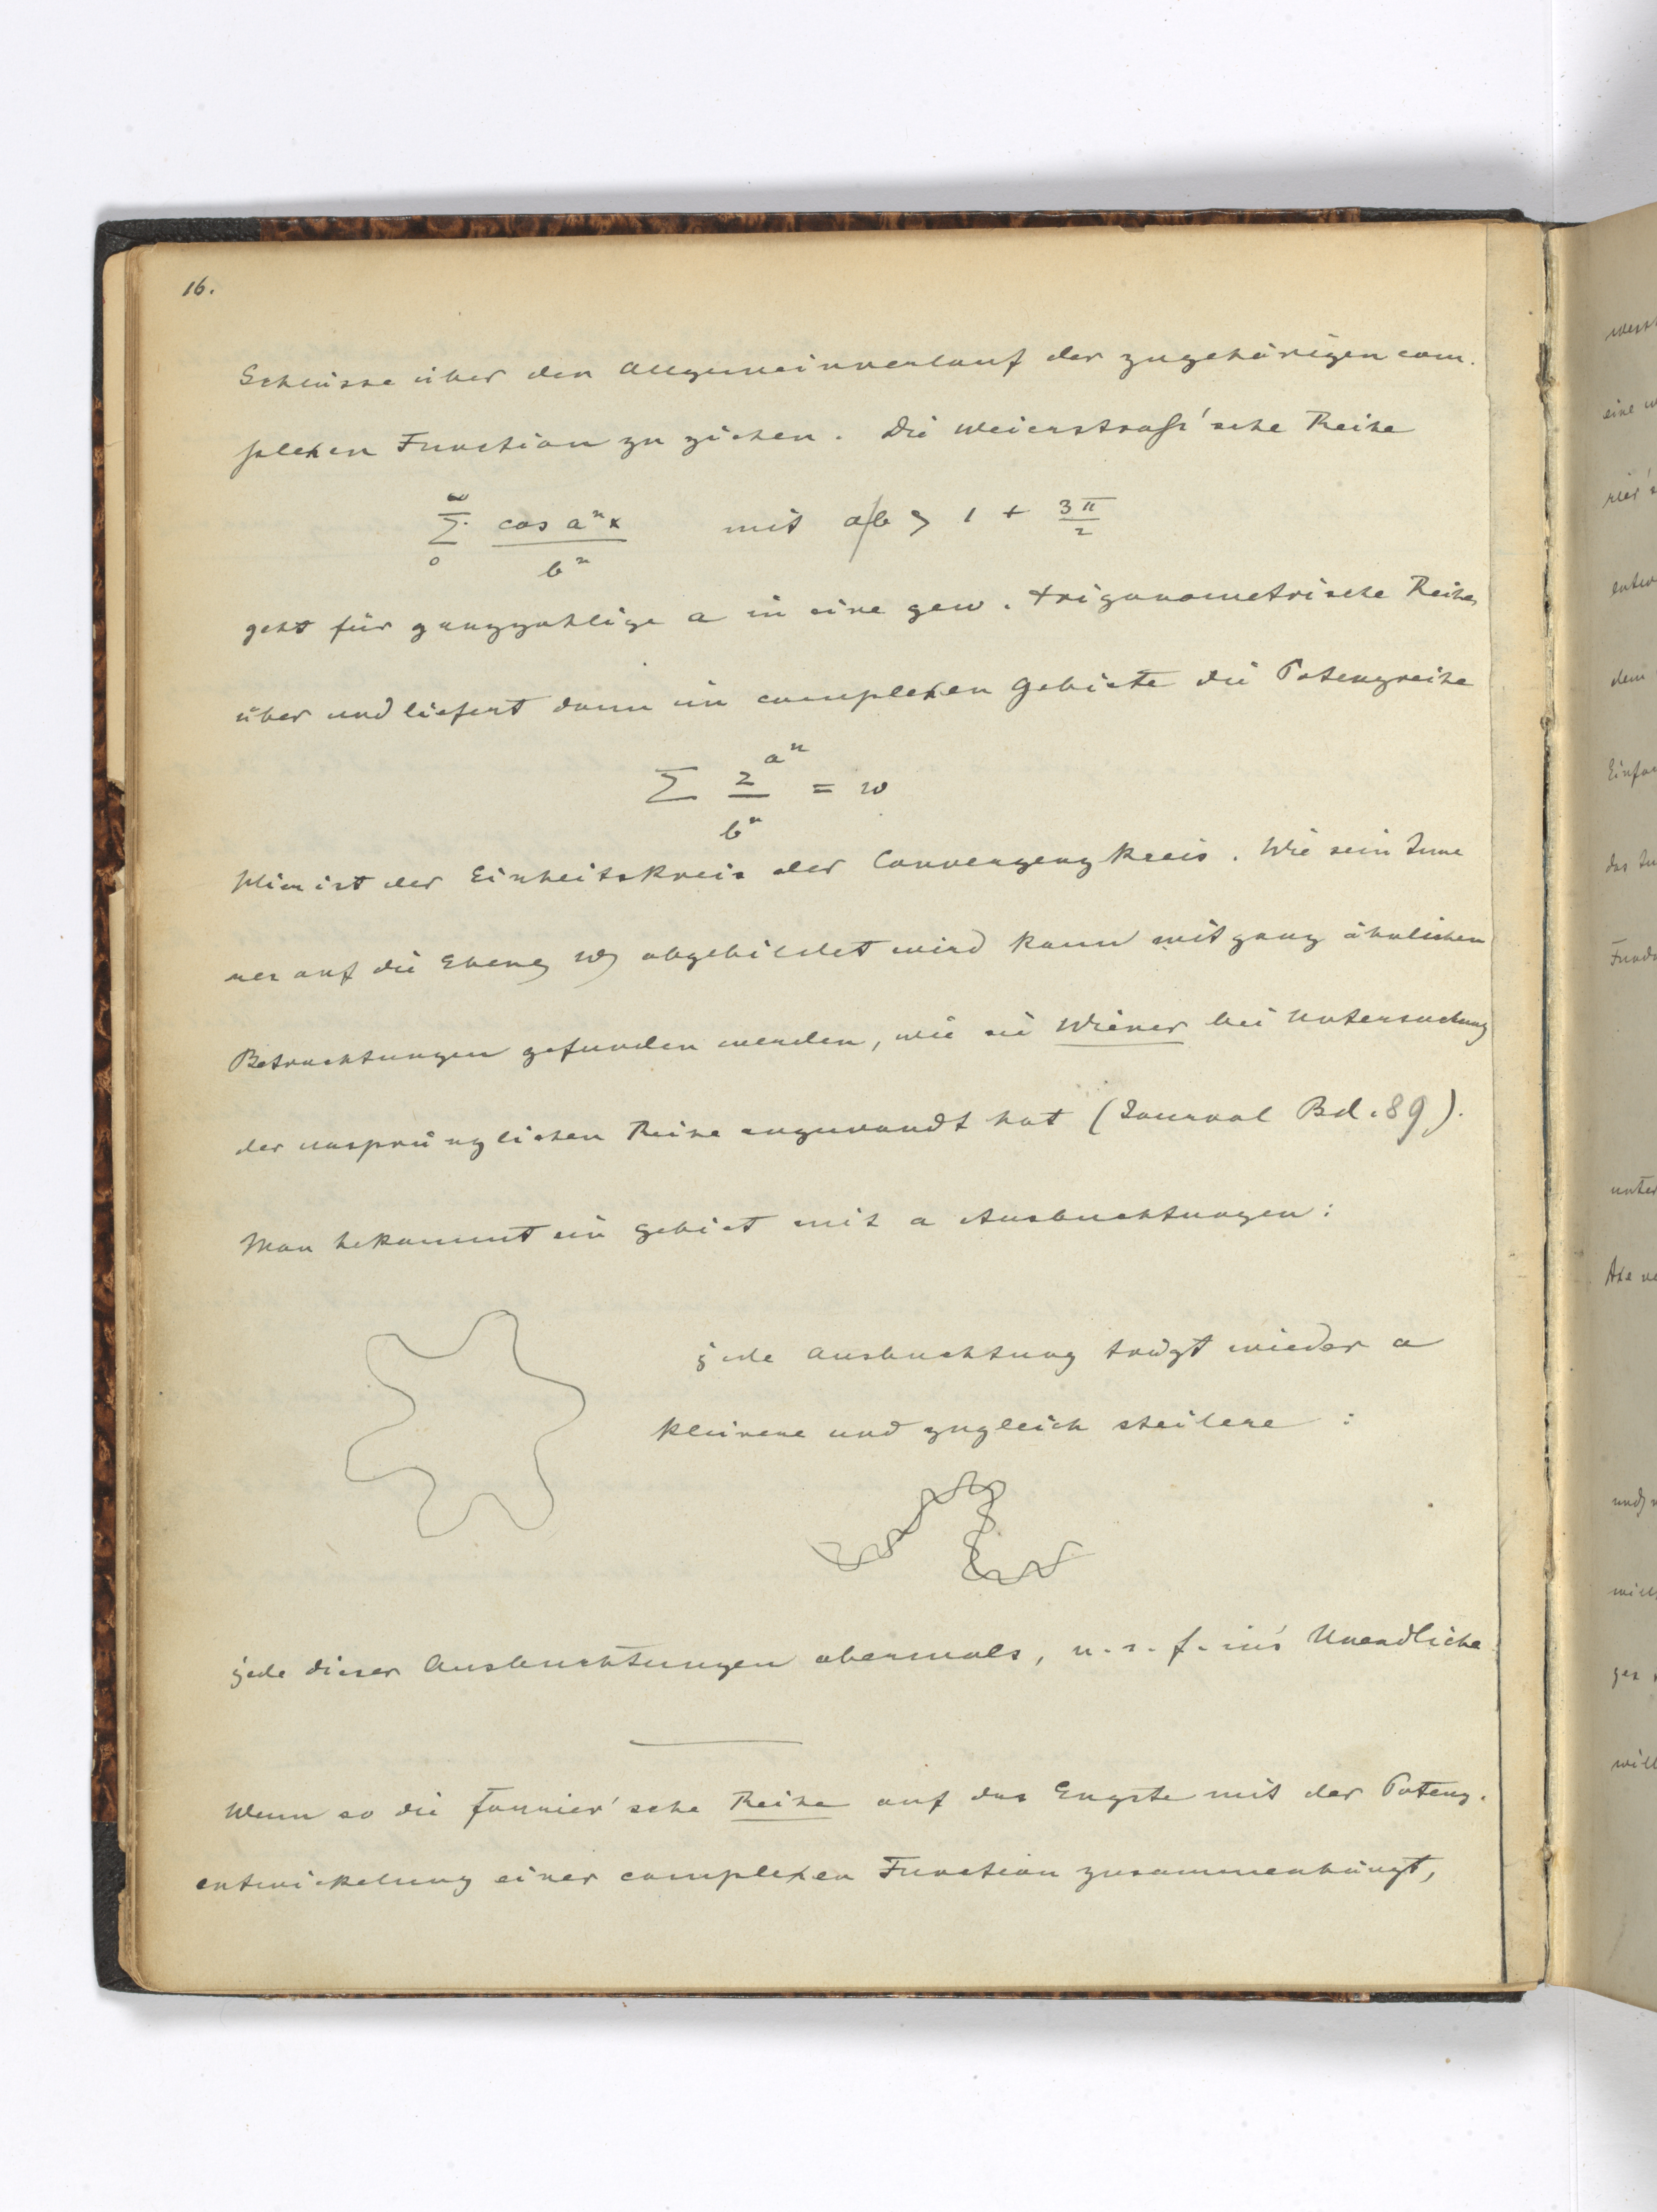 16.
Schlüsse über den Allgemeinverlauf der zugehörigen com-
plexen Function zu ziehen. Die Weierstraß'sche Reihe
∞ Σ 0 cos aⁿx / bⁿ mit a/b > 1 + 3π/2
geht für ganzzahlige a in eine gew. trigonometrische Reihe
über und liefert dann im complexen Gebiete die Potenzreihe
Σ z^{aⁿ} / bⁿ = w
Hier ist der Einheitskreis der Convergenzkreis. Wie sein Inne
res auf die Ebene w abgebildet wird kann mit ganz ähnlichen
Betrachtungen gefunden werden, wie sie Wiener bei Untersuchung
der ursprünglichen Reihe angewandt hat (Journal Bd. 89).
Man bekommt ein Gebiet mit a Ausbuchtungen:
jede Ausbuchtung trägt wieder a
kleinere und zugleich steilere :
jede dieser Ausbuchtungen abermals, u. s. f. in's Unendliche
Wenn so die Fourier'sche Reihe auf das Engste mit der Potenz-
entwickelung einer complexen Function zusammenhängt,